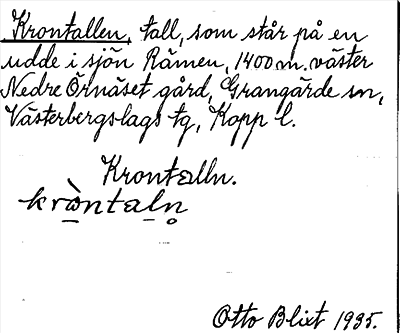 Krontallen, tall, som står på en
udde i sjön Rämen, 1400 m. väster
Nedre Örnäset gård, Grangärde sn,
Västerbergslags tg, Kopp l.
Krontalln.
kròntaln̥
Otto Blixt 1935.